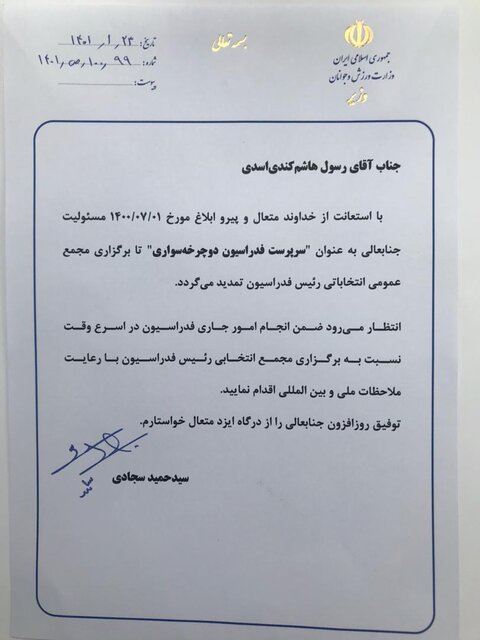 بسمه تعالی
جمهوری اسلامی ایران
وزارت ورزش و جوانان
وزیر
تاریخ: ۱۴۰۱/۱/۲۳
شماره: ۹۹/۱۰۰/ص/۱۴۰۱
پیوست:
جناب آقای رسول هاشم‌کندی‌اسدی
با استعانت از خداوند متعال و پیرو ابلاغ مورخ ۱۴۰۰/۰۷/۰۱ مسئولیت
جنابعالی به عنوان "سرپرست فدراسیون دوچرخه‌سواری" تا برگزاری مجمع
عمومی انتخاباتی رئیس فدراسیون تمدید می‌گردد.
انتظار می‌رود ضمن انجام امور جاری فدراسیون در اسرع وقت
نسبت به برگزاری مجمع انتخابی رئیس فدراسیون با رعایت
ملاحظات ملی و بین المللی اقدام نمایید.
توفیق روزافزون جنابعالی را از درگاه ایزد متعال خواستارم.
سیدحمید سجادی